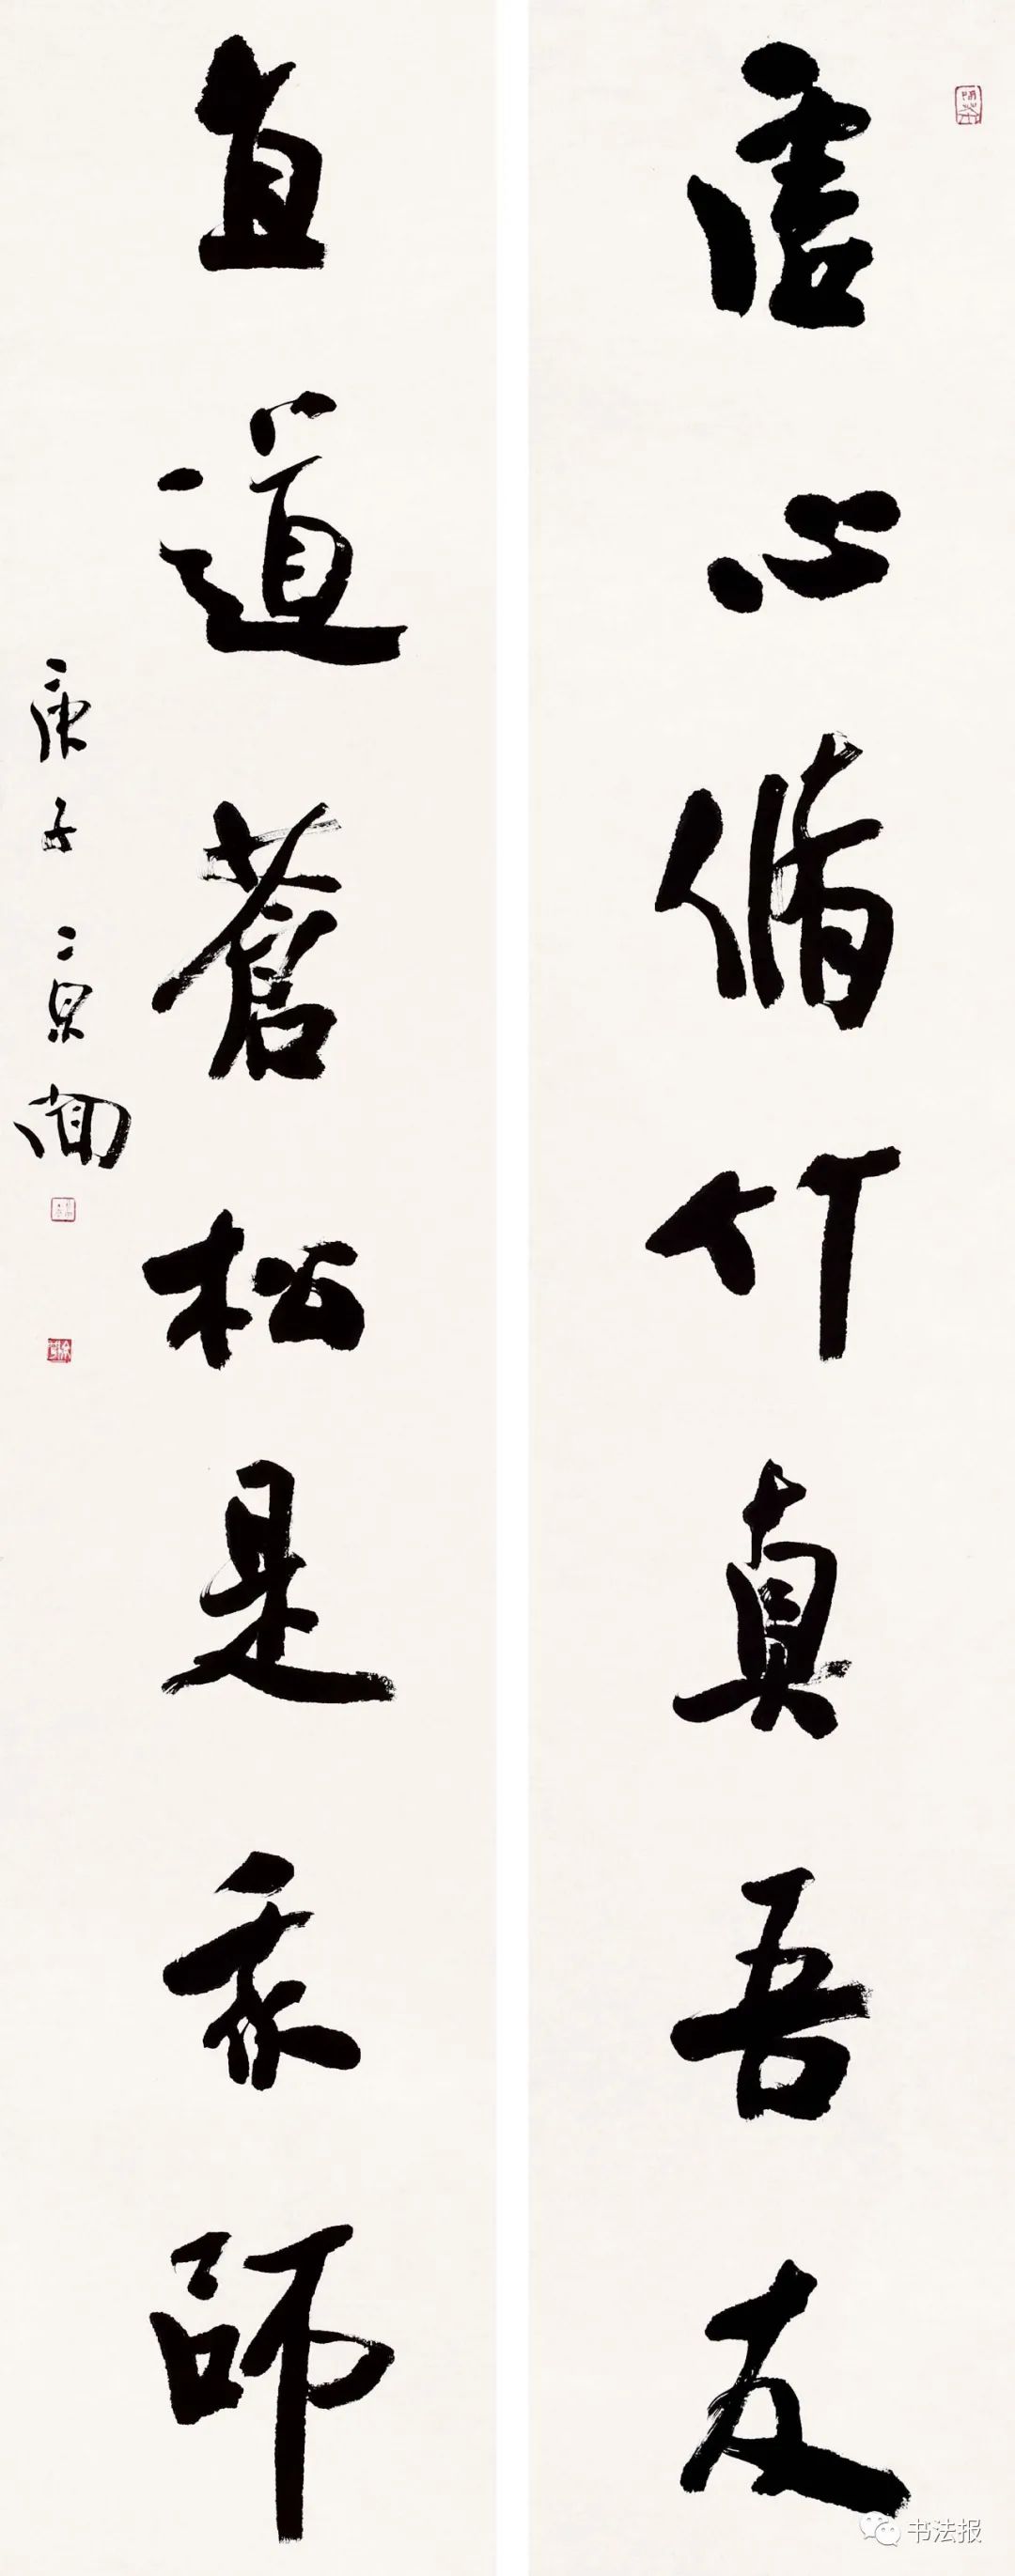 虚心脩竹真吾友
直道蒼松是我師
庚子 言闻
书法报